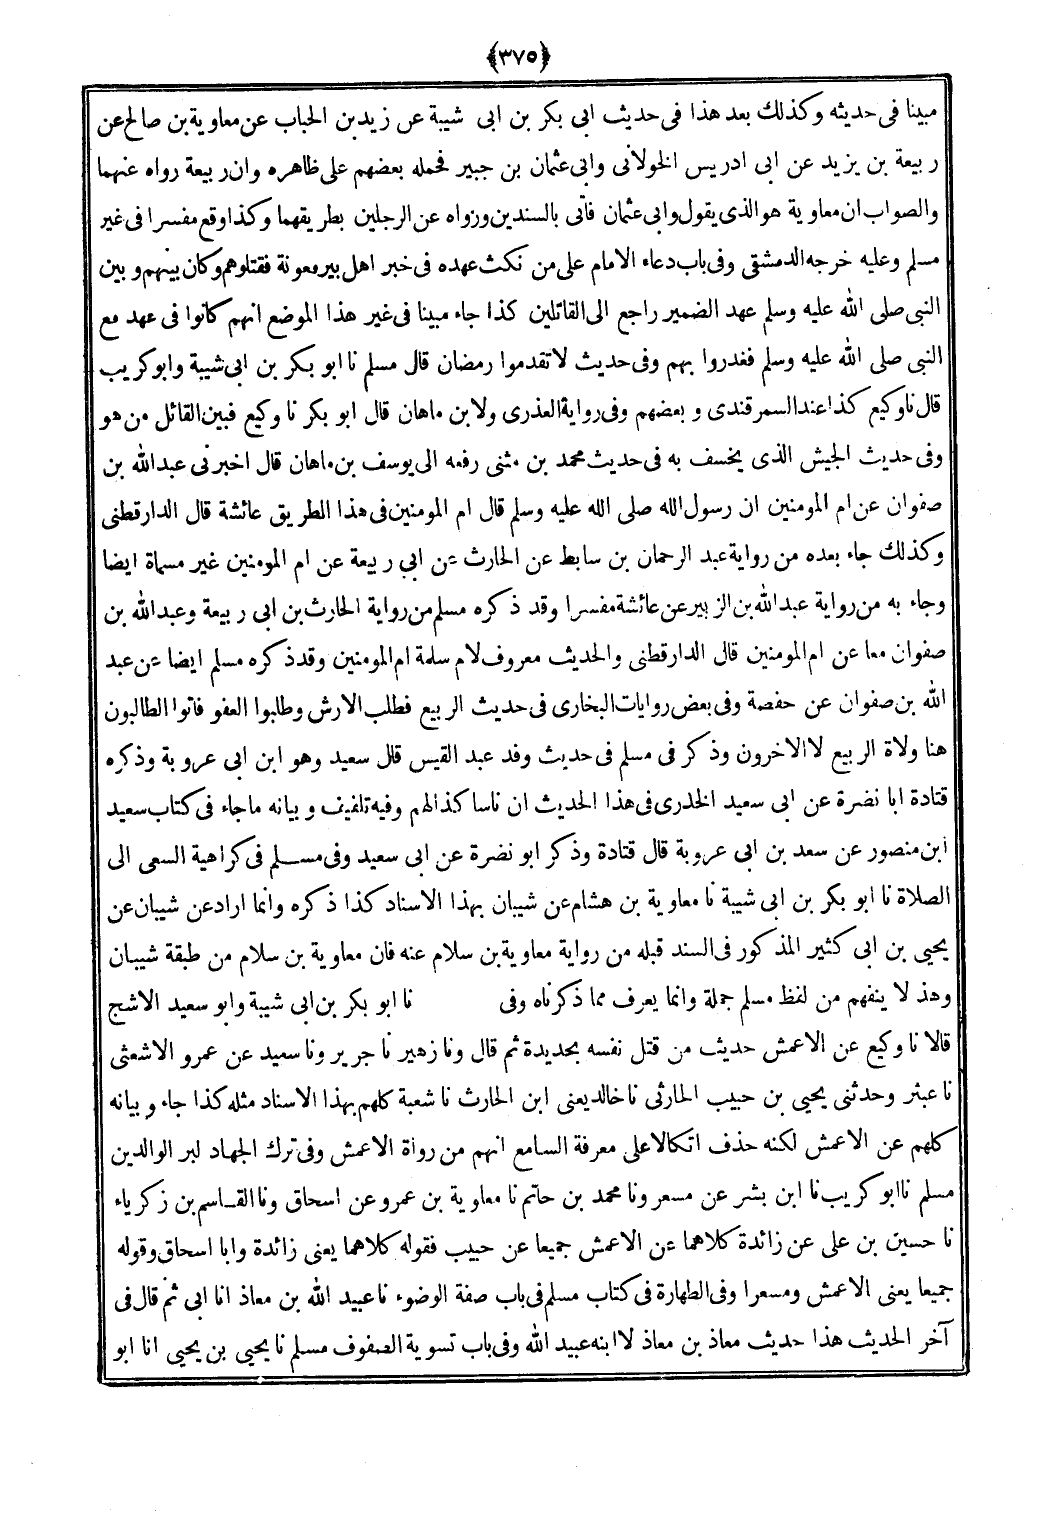 ﴿٣٧٥﴾
مبينا فى حديثه وكذلك بعد هذا فى حديث ابى بكر بن ابى شيبة عن زيد بن الحباب عن معاوية بن صالح عن
ربيعة بن يزيد عن ابى ادريس الخولانى وابى عثمان بن جبير فحمله بعضهم على ظاهره وان ربيعة رواه عنهما
والصواب ان معاوية هو الذى يقول وابى عثمان فأتى بالسندين ورواه عن الرجلين بطريقهما وكذا وقع مفسرا فى غير
مسلم وعليه خرجه الدمشقى وفى باب دعاء الامام على من نكث عهده فى خبر اهل بير معونة فقتلوهم وكان بينهم وبين
النبى صلى الله عليه وسلم عهد الضمير راجع الى القاتلين كذا جاء مبينا فى غير هذا الموضع انهم كانوا فى عهد مع
النبى صلى الله عليه وسلم فغدروا بهم وفى حديث لا تقدموا رمضان قال مسلم نا ابو بكر بن ابى شيبة وابو كريب
قال نا وكيع كذا عند السمرقندى وبعضهم وفى رواية العذرى ولابن ماهان قال ابو بكر نا وكيع فبين القائل من هو
وفى حديث الجيش الذى يخسف به فى حديث محمد بن مثنى رفعه الى يوسف بن ماهان قال اخبرنى عبد الله بن
صفوان عن ام المومنين ان رسول الله صلى الله عليه وسلم قال ام المومنين فى هذا الطريق عائشة قال الدارقطنى
وكذلك جاء بعده من رواية عبد الرحمان بن سابط عن الحارث عن ابي ربيعة عن ام المومنين غير مسماة ايضا
وجاء به من رواية عبد الله بن الزبير عن عائشة مفسرا وقد ذكره مسلم من رواية الحارث بن ابى ربيعة وعبد الله بن
صفوان معا عن ام المومنين قال الدارقطنى والحديث معروف لام سلمة ام المومنين وقد ذكره مسلم ايضا عن عبد
الله بن صفوان عن حفصة وفى بعض روايات البخارى فى حديث الربيع فطلب الارش وطلبوا العفو فاتوا الطالبون
هنا ولاة الربيع لا الاخرون وذكر فى مسلم فى حديث وفد عبد القيس قال سعيد وهو ابن ابى عروبة وذكره
قتادة ابا نضرة عن ابى سعيد الخدرى فى هذا الحديث ان ناسا كذا لهم وفيه تلفيف وبيانه ما جاء فى كتاب سعيد
ابن منصور عن سعد بن ابى عروبة قال قتادة وذكر ابو نضرة عن ابى سعيد وفى مسلم فى كراهية السعى الى
الصلاة نا ابو بكر بن ابى شيبة نا معاوية بن هشام عن شيبان بهذا الاسناد كذا ذكره وانما اراد عن شيبان عن
يحيى بن ابى كثير المذكور فى السند قبله من رواية معاوية بن سلام عنه فان معاوية بن سلام من طبقة شيبان
وهذ لا ينفهم من لفظ مسلم جملة وانما يعرف مما ذكرناه وفى نا ابو بكر بن ابى شيبة وابو سعيد الاشج
قالا نا وكيع عن الاعمش حديث من قتل نفسه بحديدة ثم قال ونا زهير نا جرير ونا سعيد عن عمرو الاشعثى
نا عبثر وحدثنى يحيى بن حبيب الحارثى نا خالد يعنى ابن الحارث نا شعبة كلهم بهذا الاسناد مثله كذا جاء وبيانه
كلهم عن الاعمش لكنه حذف اتكالا على معرفة السامع انهم من رواة الاعمش وفى ترك الجهاد لبر الوالدين
مسلم نا ابو كريب نا ابن بشر عن مسعر ونا محمد بن حاتم نا معاوية بن عمرو عن اسحاق ونا القاسم بن زكرياء
نا حسين بن على عن زائدة كلاهما عن الاعمش جميعا عن حبيب فقوله كلاهما يعنى زائدة وابا اسحاق وقوله
جميعا يعنى الاعمش ومسعرا وفى الطهارة فى كتاب مسلم فى باب صفة الوضوء نا عبيد الله بن معاذ انا ابى ثم قال فى
آخر الحديث هذا حديث معاذ بن معاذ لا ابنه عبيد الله وفى باب تسوية الصفوف مسلم نا يحيى بن يحيى انا ابو